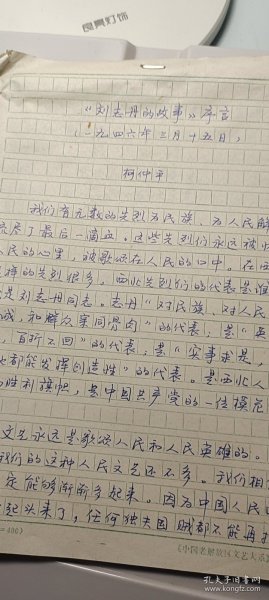 良真灯饰
《刘志丹的故事》序言
（一九四六年三月十五日）
柯仲平
我们有无数的先烈为民族、为人民解
流尽了最后一滴血。这些先烈们永远被
民的心里，被歌颂在人民的口中。在
样的先烈很多，西北先烈们的代表是谁
是刘志丹同志。志丹“对民族、对人民
诚，和群众亲同骨肉”的代表，是“英
，百折不回”的代表，是“实事求是，
都能发挥创造性”的代表。是西北人
胜利旗帜，是中国共产党的一位模范
文艺永远是歌颂人民和人民英雄的。
我们的这种人民文艺还不多。我们相
定能够渐渐多起来。因为中国人民
起头来了，任何独夫国贼都不能再
=400）
《中国老解放区文艺大系
孔夫子旧书网